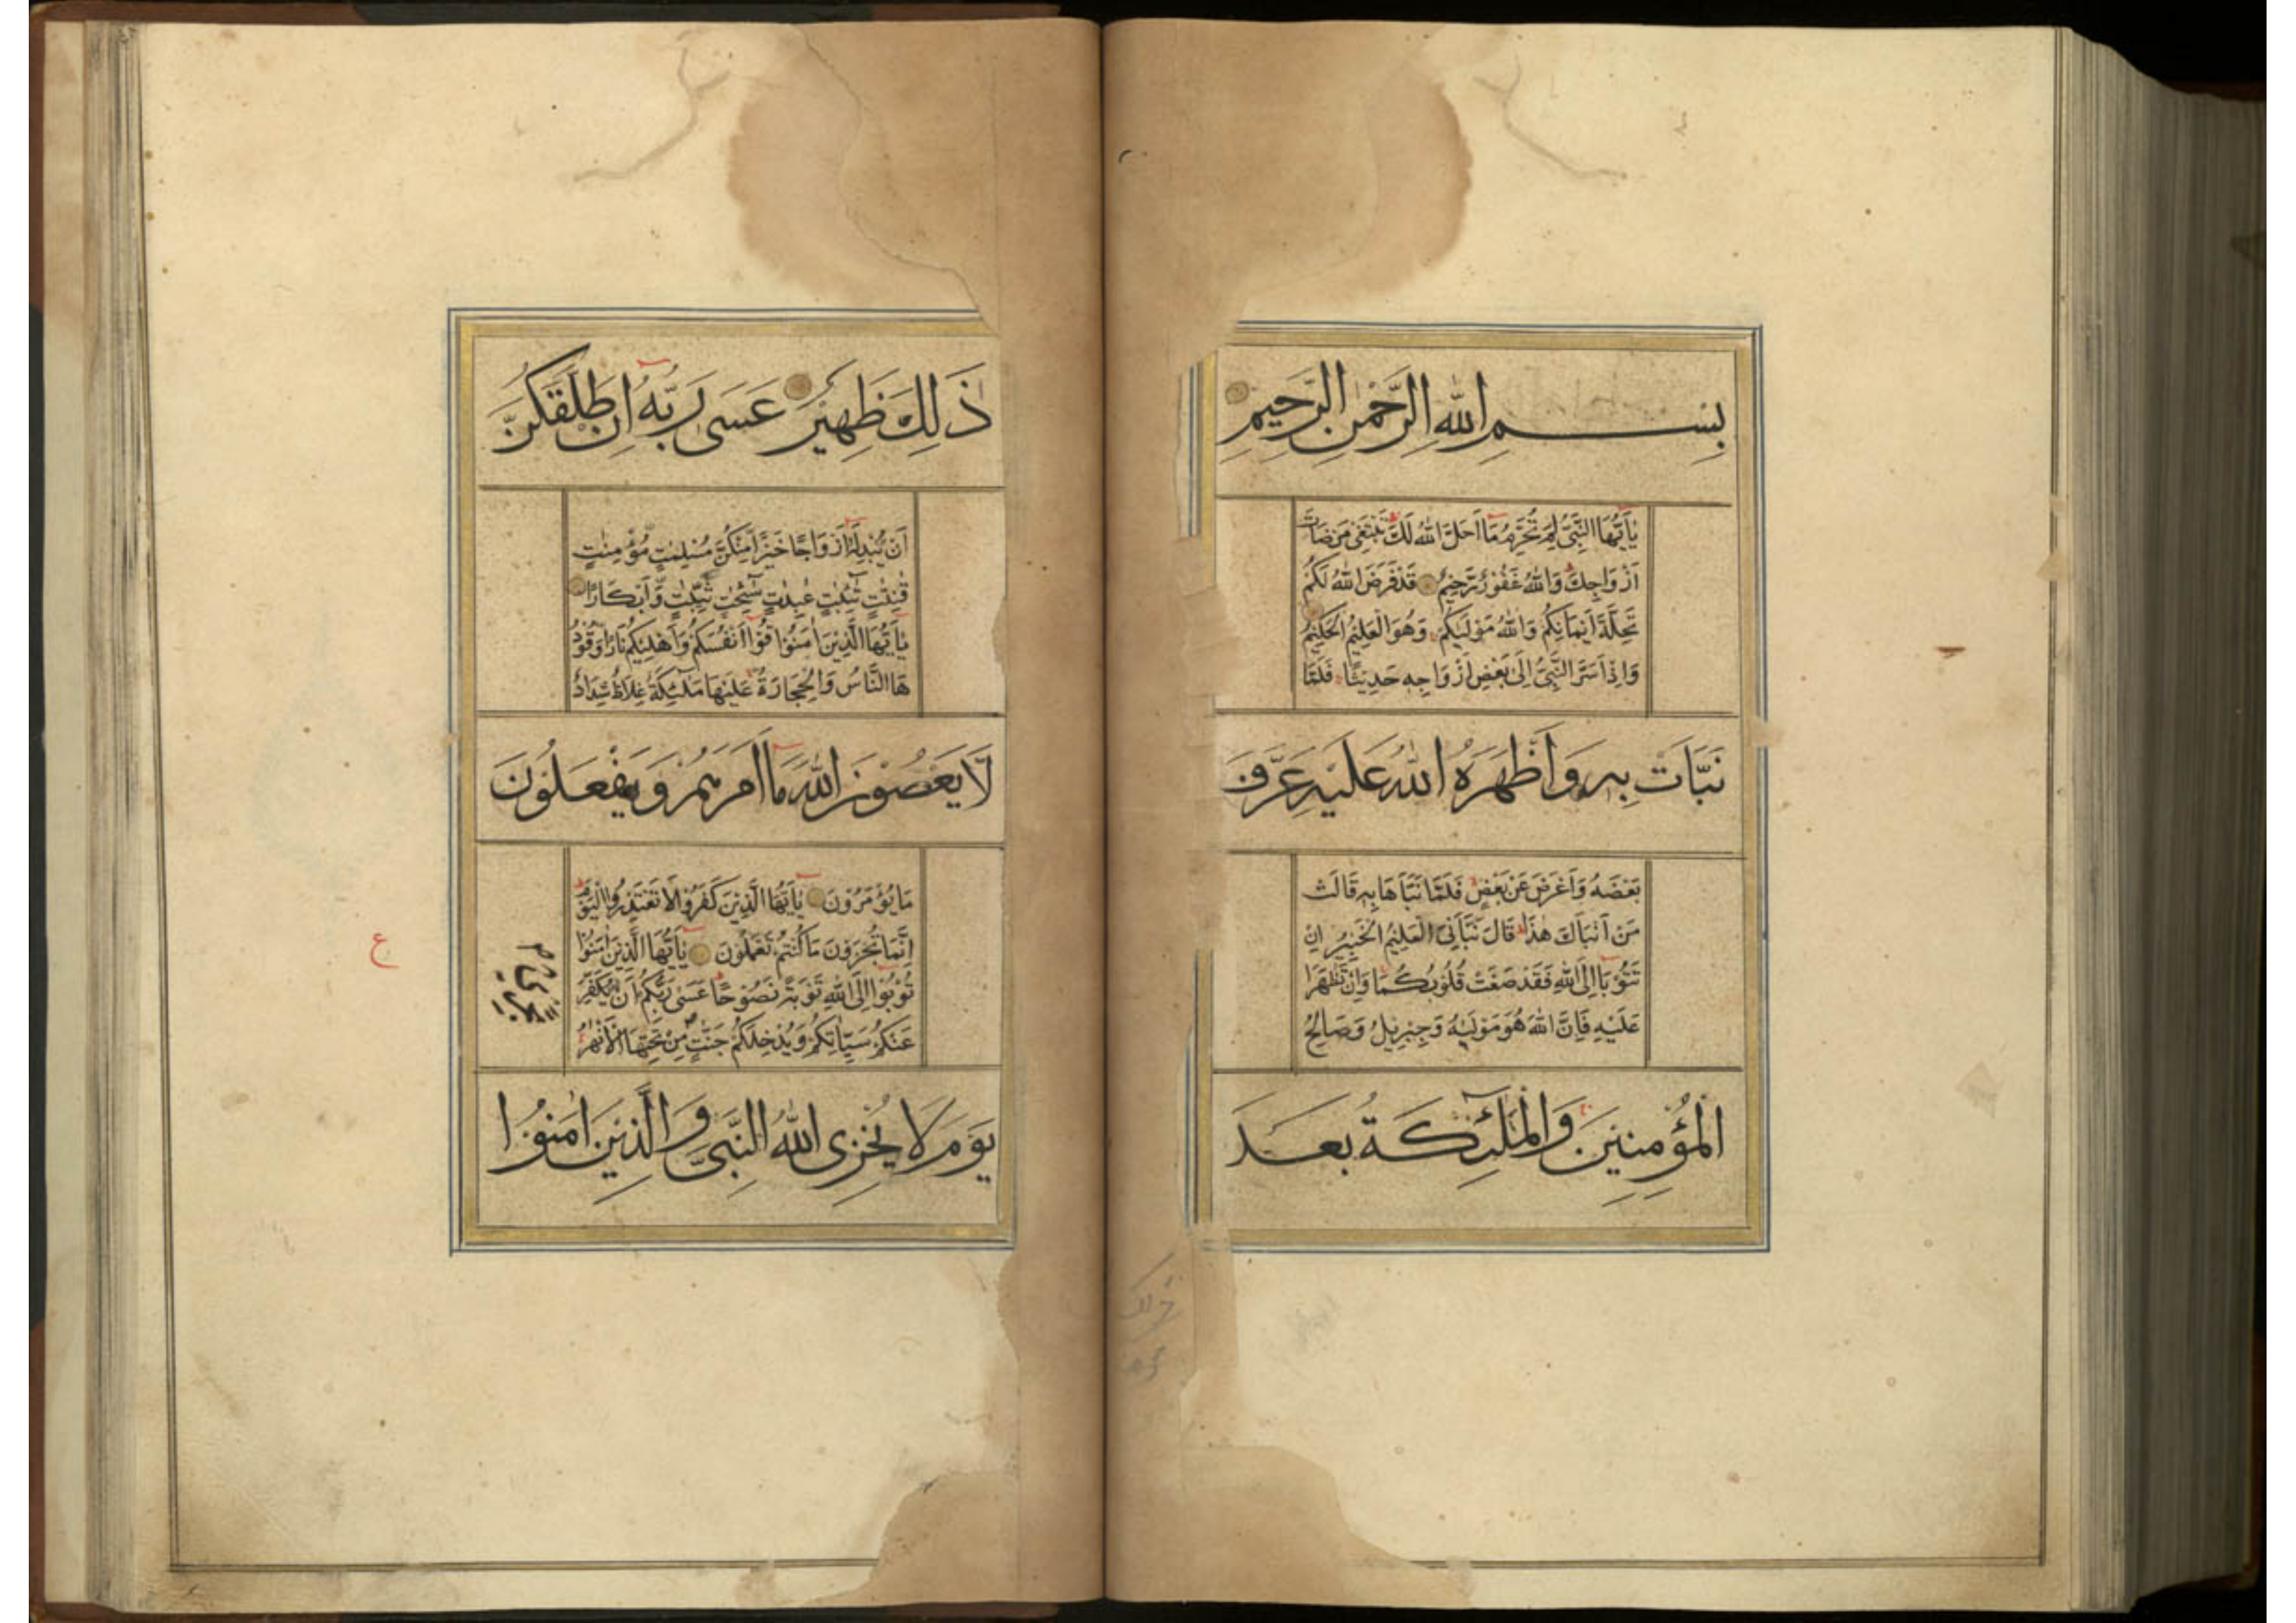 بِسْمِ اللهِ الرَّحْمٰنِ الرَّحِيْمِ
يٰاَيُّهَا النَّبِىُّ لِمَ تُحَرِّمُ مَا اَحَلَّ اللهُ لَكَ تَبْتَغِىْ مَرْضَاتَ
اَزْوَاجِكَ وَاللهُ غَفُوْرٌ رَّحِيْمٌ قَدْ فَرَضَ اللهُ لَكُمْ
تَحِلَّةَ اَيْمَانِكُمْ وَاللهُ مَوْلٰيكُمْ وَهُوَ الْعَلِيْمُ الْحَكِيْمُ
وَاِذْ اَسَرَّ النَّبِىُّ اِلٰى بَعْضِ اَزْوَاجِهٖ حَدِيْثًا فَلَمَّا
نَبَّاَتْ بِهٖ وَاَظْهَرَهُ اللهُ عَلَيْهِ عَرَّفَ
بَعْضَهُ وَاَعْرَضَ عَنْ بَعْضٍ فَلَمَّا نَبَّاَهَا بِهٖ قَالَتْ
مَنْ اَنْبَاَكَ هٰذَا قَالَ نَبَّاَنِىَ الْعَلِيْمُ الْخَبِيْرُ اِنْ
تَتُوْبَا اِلَى اللهِ فَقَدْ صَغَتْ قُلُوْبُكُمَا وَاِنْ تَظٰهَرَا
عَلَيْهِ فَاِنَّ اللهَ هُوَ مَوْلٰيهُ وَجِبْرِيْلُ وَصَالِحُ
الْمُؤْمِنِيْنَ وَالْمَلٰٓئِكَةُ بَعْدَ
ذٰلِكَ ظَهِيْرٌ عَسٰى رَبُّهٗ اِنْ طَلَّقَكُنَّ
اَنْ يُّبْدِلَهٗ اَزْوَاجًا خَيْرًا مِنْكُنَّ مُسْلِمٰتٍ مُؤْمِنٰتٍ
قٰنِتٰتٍ تٰٓئِبٰتٍ عٰبِدٰتٍ سٰٓئِحٰتٍ ثَيِّبٰتٍ وَّاَبْكَارًا
يٰاَيُّهَا الَّذِيْنَ اٰمَنُوْا قُوْا اَنْفُسَكُمْ وَاَهْلِيْكُمْ نَارًا وَقُوْدُ
هَا النَّاسُ وَالْحِجَارَةُ عَلَيْهَا مَلٰٓئِكَةٌ غِلَاظٌ شِدَادٌ
لَّا يَعْصُوْنَ اللهَ مَا اَمَرَهُمْ وَيَفْعَلُوْنَ
مَا يُؤْمَرُوْنَ يٰاَيُّهَا الَّذِيْنَ كَفَرُوْا لَا تَعْتَذِرُوا الْيَوْمَ
اِنَّمَا تُجْزَوْنَ مَا كُنْتُمْ تَعْمَلُوْنَ يٰاَيُّهَا الَّذِيْنَ اٰمَنُوْا
تُوْبُوْا اِلَى اللهِ تَوْبَةً نَصُوْحًا عَسٰى رَبُّكُمْ اَنْ يُّكَفِّرَ
عَنْكُمْ سَيِّاٰتِكُمْ وَيُدْخِلَكُمْ جَنّٰتٍ مِنْ تَحْتِهَا الْاَنْهٰرُ
يَوْمَ لَا يُخْزِى اللهُ النَّبِىَّ وَالَّذِيْنَ اٰمَنُوْا
ع